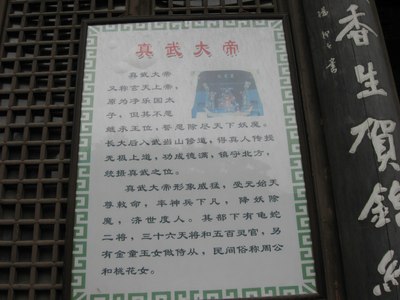 真武大帝
真武大帝
又称玄天上帝，
原为净乐国太
子，但其不愿
继承王位，誓愿除尽天下妖魔。
长大后入武当山修道，得真人传授
无极上道，功成德满，镇守北方，
统摄真武之位。
真武大帝形象威猛，受元始天
尊敕命，率神兵下凡，降妖除
魔，济世度人。其部下有龟蛇
二将，三十六天将和五百灵官，另
有金童玉女做侍从，民间俗称周公
和桃花女。
香生贺锦